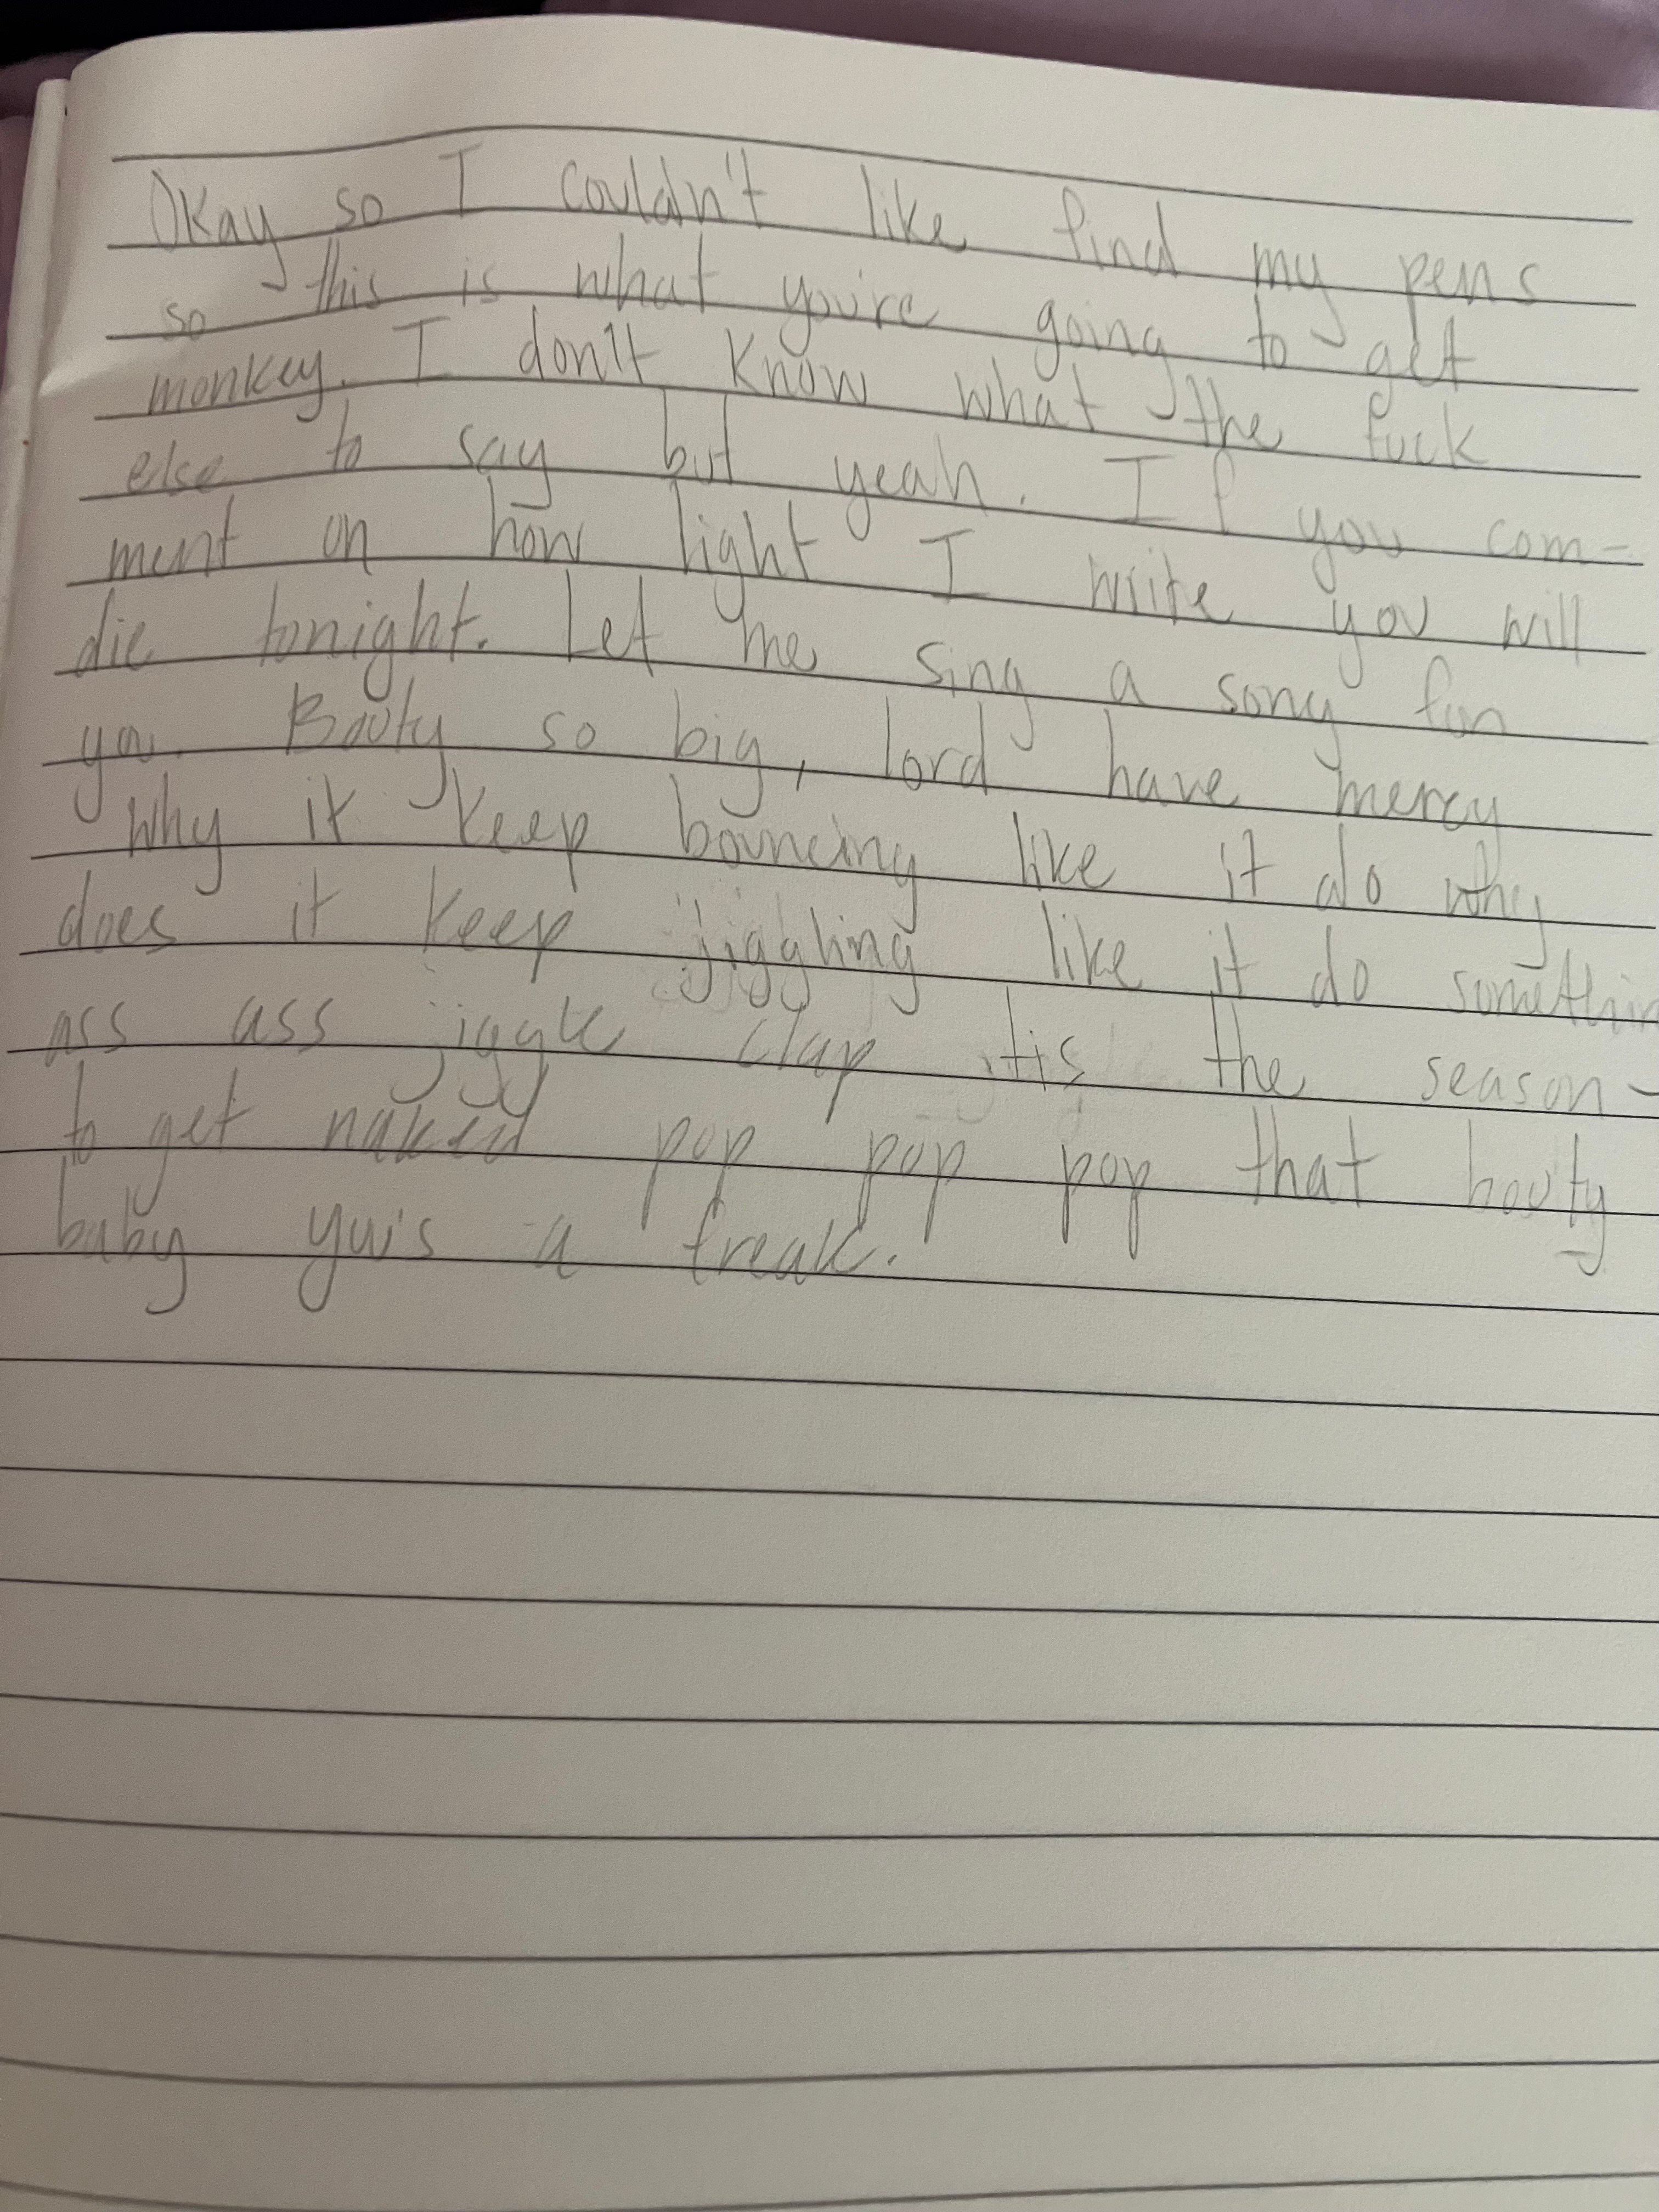 Okay so I couldn't like find my pens
so this is what you're going to get
monkey. I don't know what the fuck
else to say but yeah. If you com-
ment on how light I write you will
die tonight. Let me sing a song for
you. Booty so big, lord have mercy
Why it keep bouncing like it do why
does it keep jiggling like it do somethin
ass ass jiggle clap tis the season-
to get naked pop pop pop that booty
baby a freak.